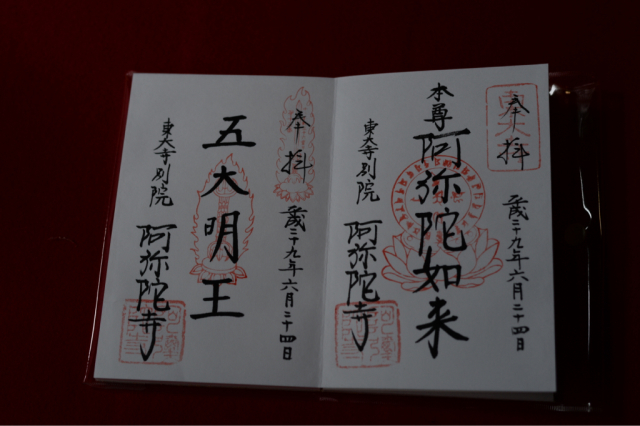 奉拝
平成二十九年六月二十四日
本尊
阿弥陀如来
東大寺別院
阿弥陀寺
奉拝
平成二十九年六月二十四日
五大明王
東大寺別院
阿弥陀寺